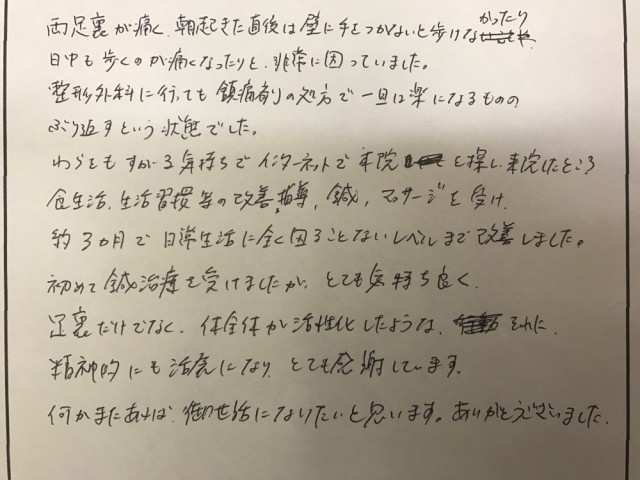 両足裏が痛く、朝起きた直後は壁に手をつかないと歩けなかったり
日中も歩くのが痛くなったりと、非常に困っていました。
整形外科に行っても鎮痛剤の処方で一旦は楽になるものの
ぶり返すという状態でした。
わらをもすがる気持ちでインターネットで本院を探し来院したところ
食生活、生活習慣等の改善指導、鍼、マッサージを受け、
約3ヵ月で日常生活に全く困ることないレベルまで改善しました。
初めて鍼治療を受けましたが、とても気持ち良く、
足裏だけでなく、体全体が活性化したような、それに、
精神的にも活気になり、とても感謝しています。
何かまたあれば、御世話になりたいと思います。ありがとうございました。